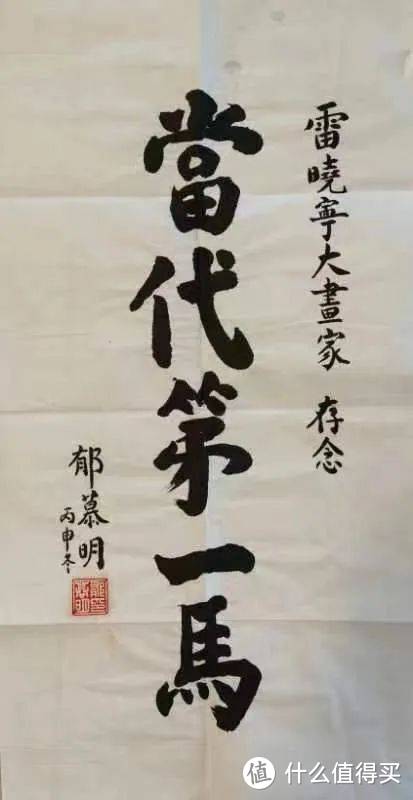 雷曉寧大畫家 存念
當代第一馬
郁慕明
丙申冬
值 什么值得买